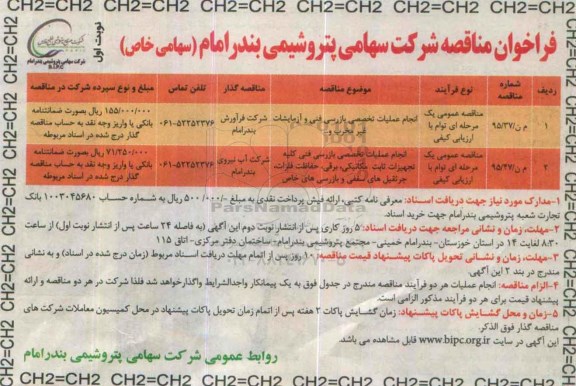 CH2=CH2 CH2=CH2 CH2=CH2 CH2=CH2 CH2=CH2 CH2=CH2 CH2=CH2
نوبت اول
شرکت سهامی پتروشیمی بندرامام
B.I.P.C
فراخوان مناقصه شرکت سهامی پتروشیمی بندر امام (سهامی خاص)
ردیف
شماره مناقصه
نوع فرآیند
موضوع مناقصه
مناقصه گذار
تلفن تماس
مبلغ و نوع سپرده شرکت در مناقصه
۱
م ن/۹۵/۳۷
مناقصه عمومی یک مرحله ای توام با ارزیابی کیفی
انجام عملیات تخصصی بازرسی فنی و آزمایشات غیر مخرب و ...
شرکت فرآورش بندرامام
۰۶۱-۵۲۲۵۲۳۷۶
۱۵۵/۰۰۰/۰۰۰ ریال بصورت ضمانتنامه بانکی یا واریز وجه نقد به حساب مناقصه گذار درج شده در اسناد مربوطه
۲
م ن/۹۵/۴۷
مناقصه عمومی یک مرحله ای توام با ارزیابی کیفی
انجام عملیات تخصصی بازرسی فنی کلیه تجهیزات ثابت، مکانیکی، برقی، حفاظت فلزات، جرثقیل های سقفی و بازرسی های خاص
شرکت آب نیروی بندرامام
۰۶۱-۵۲۲۵۲۳۷۷
۷۱/۲۵۰/۰۰۰ ریال بصورت ضمانتنامه بانکی یا واریز وجه نقد به حساب مناقصه گذار درج شده در اسناد مربوطه
۱-مدارک مورد نیاز جهت دریافت اسناد: معرفی نامه کتبی، ارائه فیش پرداخت نقدی به مبلغ -/۵۰۰/۰۰۰ ریال به شماره حساب ۱۰۰۳۰۴۵۶۸۰ بانک
تجارت شعبه پتروشیمی بندرامام جهت خرید اسناد.
۲-مهلت، زمان و نشانی مراجعه جهت دریافت اسناد: ۵ روز کاری پس از انتشار نوبت دوم این آگهی (به فاصله ۲۴ ساعت پس از انتشار نوبت اول) از ساعت
۸:۳۰ لغایت ۱۴ در استان خوزستان- بندرامام خمینی- مجتمع پتروشیمی بندرامام- ساختمان دفتر مرکزی- اتاق ۱۱۵
۳-مهلت، زمان و نشانی تحویل پاکات پیشنهاد قیمت مناقصه: ۱۰ روز پس از اتمام مهلت دریافت اسناد مربوط (زمان درج شده در اسناد) و به نشانی
مندرج در بند ۲ این آگهی.
۴-الزام مناقصه: انجام عملیات هر دو فرآیند مناقصه مندرج در جدول فوق به یک پیمانکار واجدالشرایط واگذارخواهد شد فلذا شرکت در هر دو مناقصه و ارائه
پیشنهاد قیمت برای هر دو فرآیند مذکور الزامی است.
۵-زمان و محل گشایش پاکات پیشنهاد: زمان گشایش پاکات ۲ هفته پس از اتمام زمان تحویل پاکات پیشنهاد در محل کمیسیون معاملات شرکت های
مناقصه گذار فوق الذکر.
این آگهی در سایت www.bipc.org.ir قابل مشاهده می باشد.
روابط عمومی شرکت سهامی پتروشیمی بندرامام
ParsNamadData
CH2=CH2 CH2=CH2 CH2=CH2 CH2=CH2 CH2=CH2 CH2=CH2 CH2=CH2